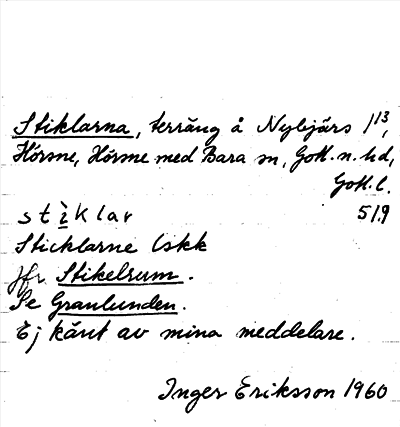 Stiklarna, terräng å Nybjärs 1¹³,
Hörsne, Hörsne med Bara sn, Gotl. n. hd,
Gotl. l.
stiklar 519
Sticklarne Lskk
Jfr Stikelrum.
Se Granlunden.
Ej känt av mina meddelare.
Inger Eriksson 1960